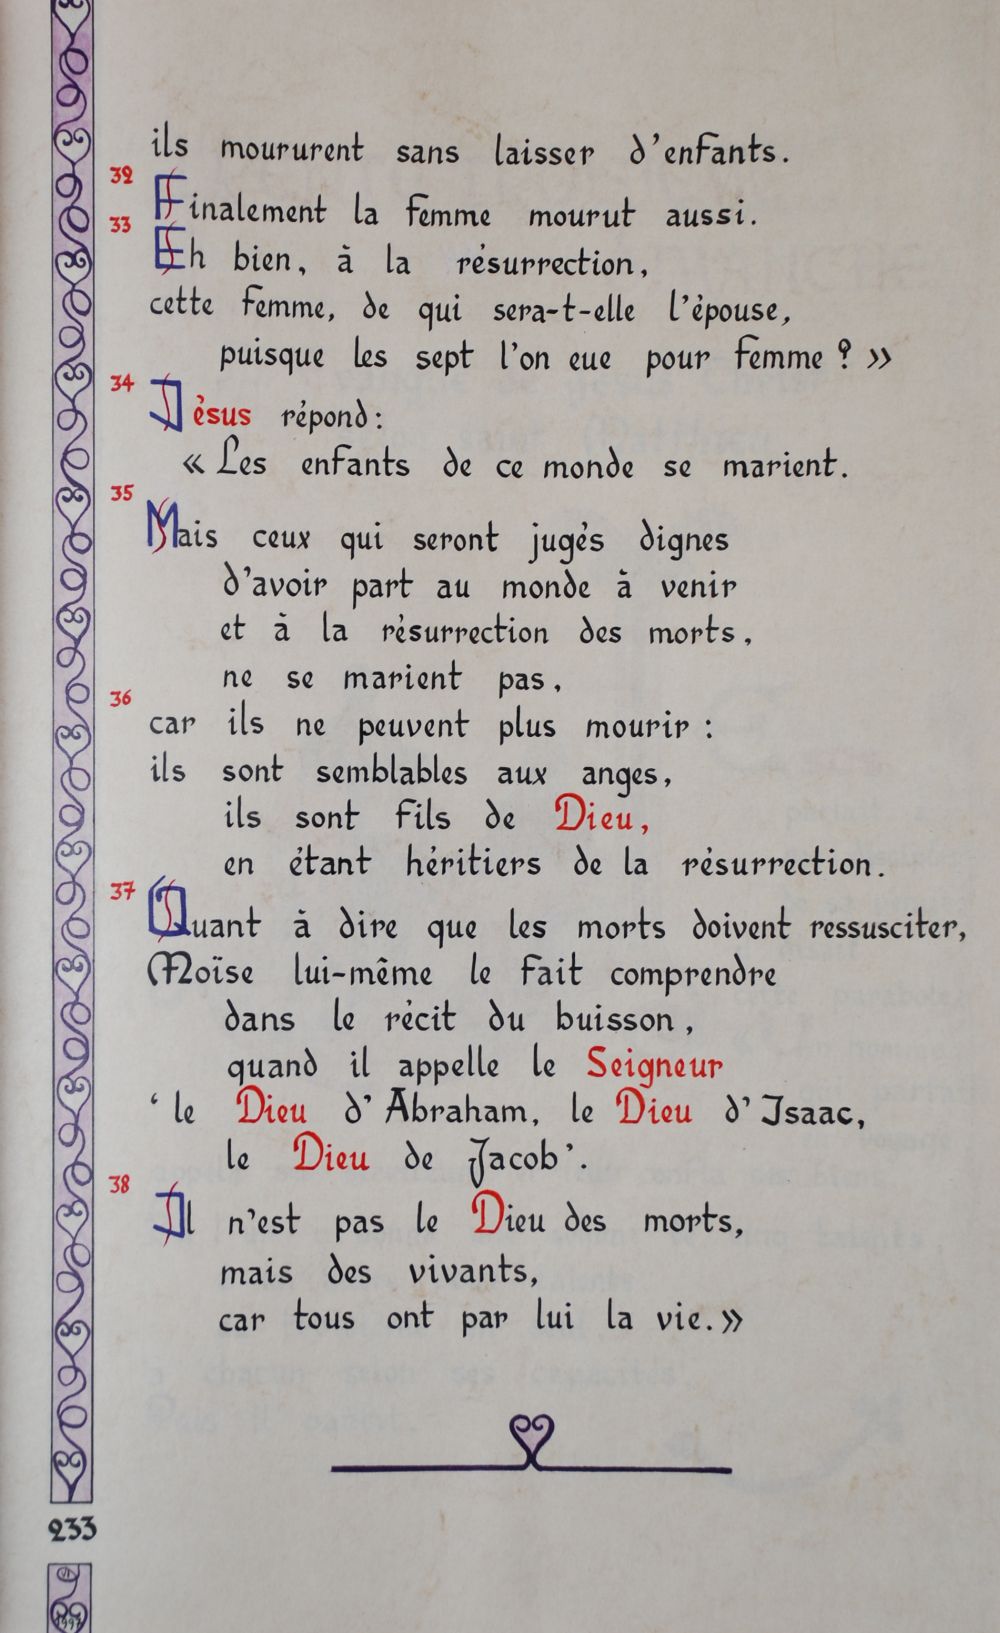 ils moururent sans laisser d'enfants.
32
Finalement la femme mourut aussi.
33
Eh bien, à la résurrection,
cette femme, de qui sera-t-elle l'épouse,
puisque les sept l'on eue pour femme ? »
34
Jésus répond :
« Les enfants de ce monde se marient.
35
Mais ceux qui seront jugés dignes
d'avoir part au monde à venir
et à la résurrection des morts,
ne se marient pas,
36
car ils ne peuvent plus mourir :
ils sont semblables aux anges,
ils sont fils de Dieu,
en étant héritiers de la résurrection.
37
Quant à dire que les morts doivent ressusciter,
Moïse lui-même le fait comprendre
dans le récit du buisson,
quand il appelle le Seigneur
‘le Dieu d'Abraham, le Dieu d'Isaac,
le Dieu de Jacob’.
38
Il n'est pas le Dieu des morts,
mais des vivants,
car tous ont par lui la vie. »
233
1997